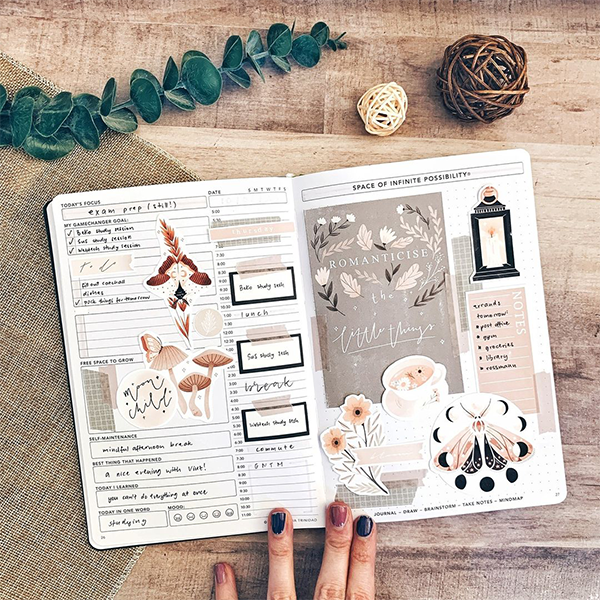 TODAY'S FOCUS
exam prep (still!)
MY GAMECHANGER GOAL:
✓ BeKo study session
✓ SuS study session
✓ Webtech study session
to do
fill out
dishes
✓ pack things for tomorrow
FREE SPACE TO GROW
moon child
SELF-MAINTENANCE
mindful afternoon break
BEST THING THAT HAPPENED
a nice evening with
TODAY I LEARNED
you can't do everything at once
TODAY IN ONE WORD
studying
MOOD:
26
DATE S M T W T F S
thursday
BeKo Study Sesh
lunch
SuS Study Sesh
break
Webtech Study Sesh
commute
GNTM
SPACE OF INFINITE POSSIBILITY®
ROMANTICISE
the
"little things"
NOTES
errands
tomorrow:
• post office
• gym
• groceries
• library
• rossmann
JOURNAL - DRAW - BRAINSTORM - TAKE NOTES - MINDMAP
27